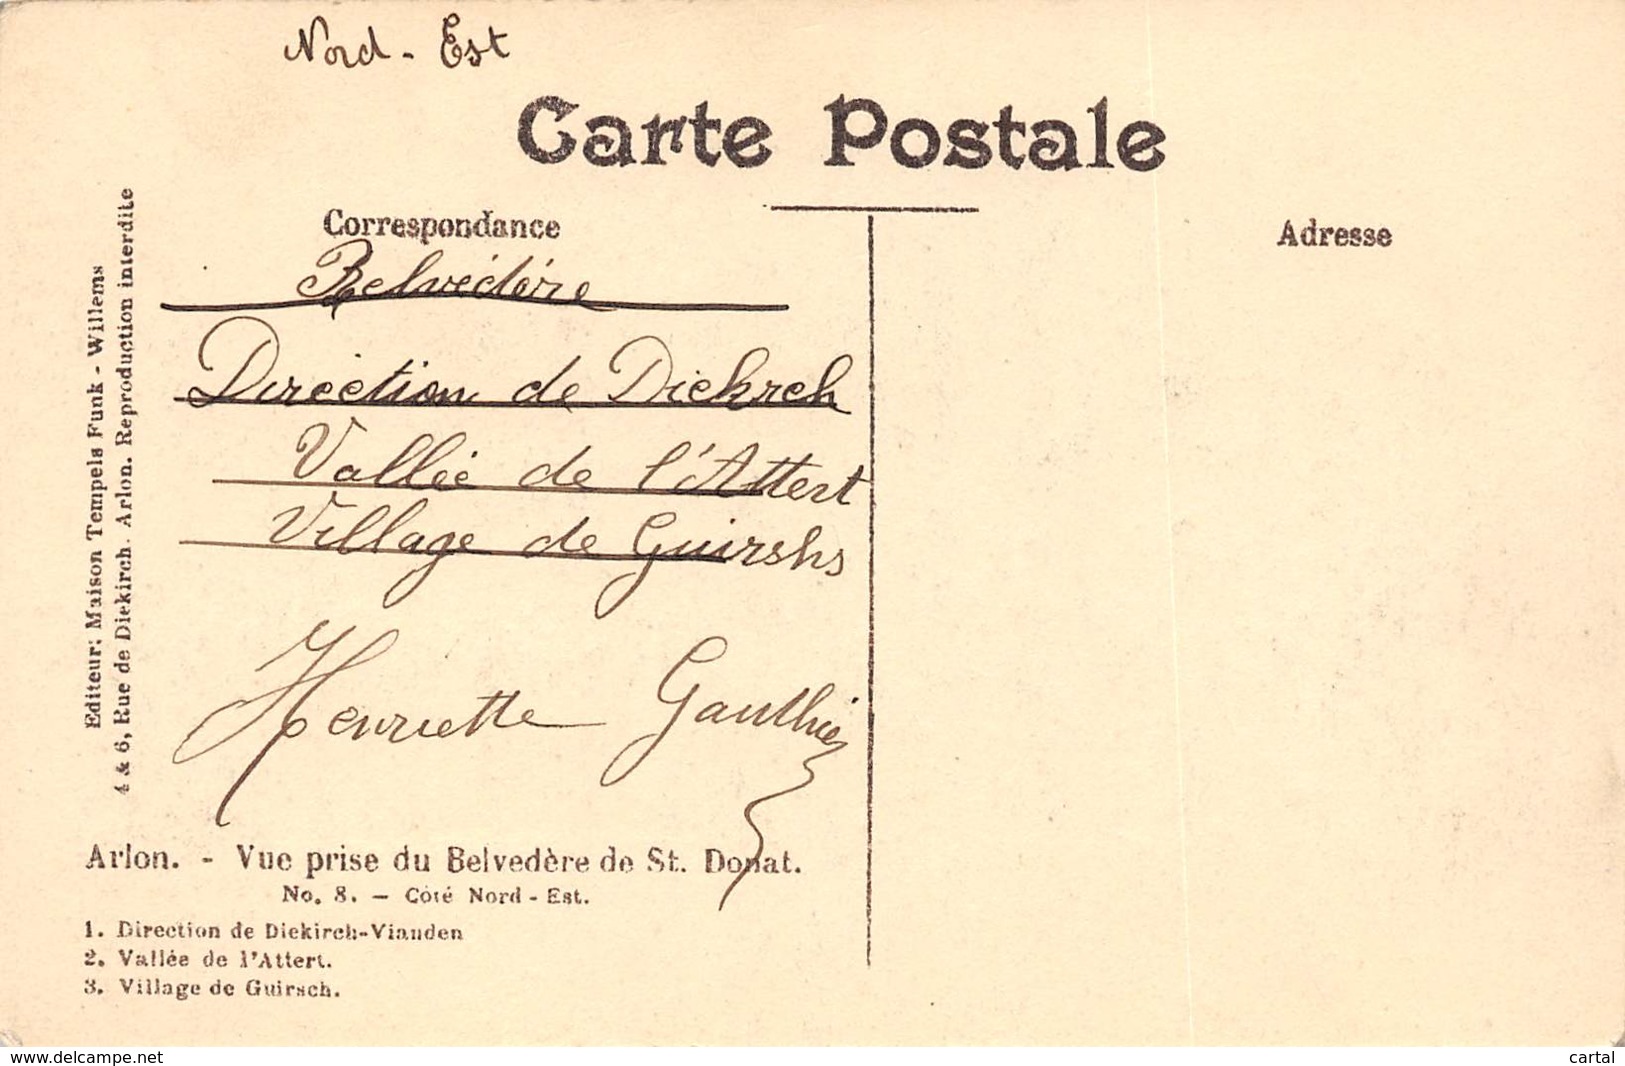 Nord - Est
Carte Postale
Correspondance
Adresse
Belvédère
Direction de Diekrch
Vallée de l'Attert
Village de Guirshs
Henriette Gauthier
Editeur: Maison Tempels Funk - Willems
4 & 6, Rue de Diekirch. Arlon. Reproduction interdite
Arlon. - Vue prise du Belvedère de St. Donat.
No. 8. — Côté Nord - Est.
1. Direction de Diekirch-Vianden
2. Vallée de l'Attert.
3. Village de Guirsch.
www.delcampe.net
cartal